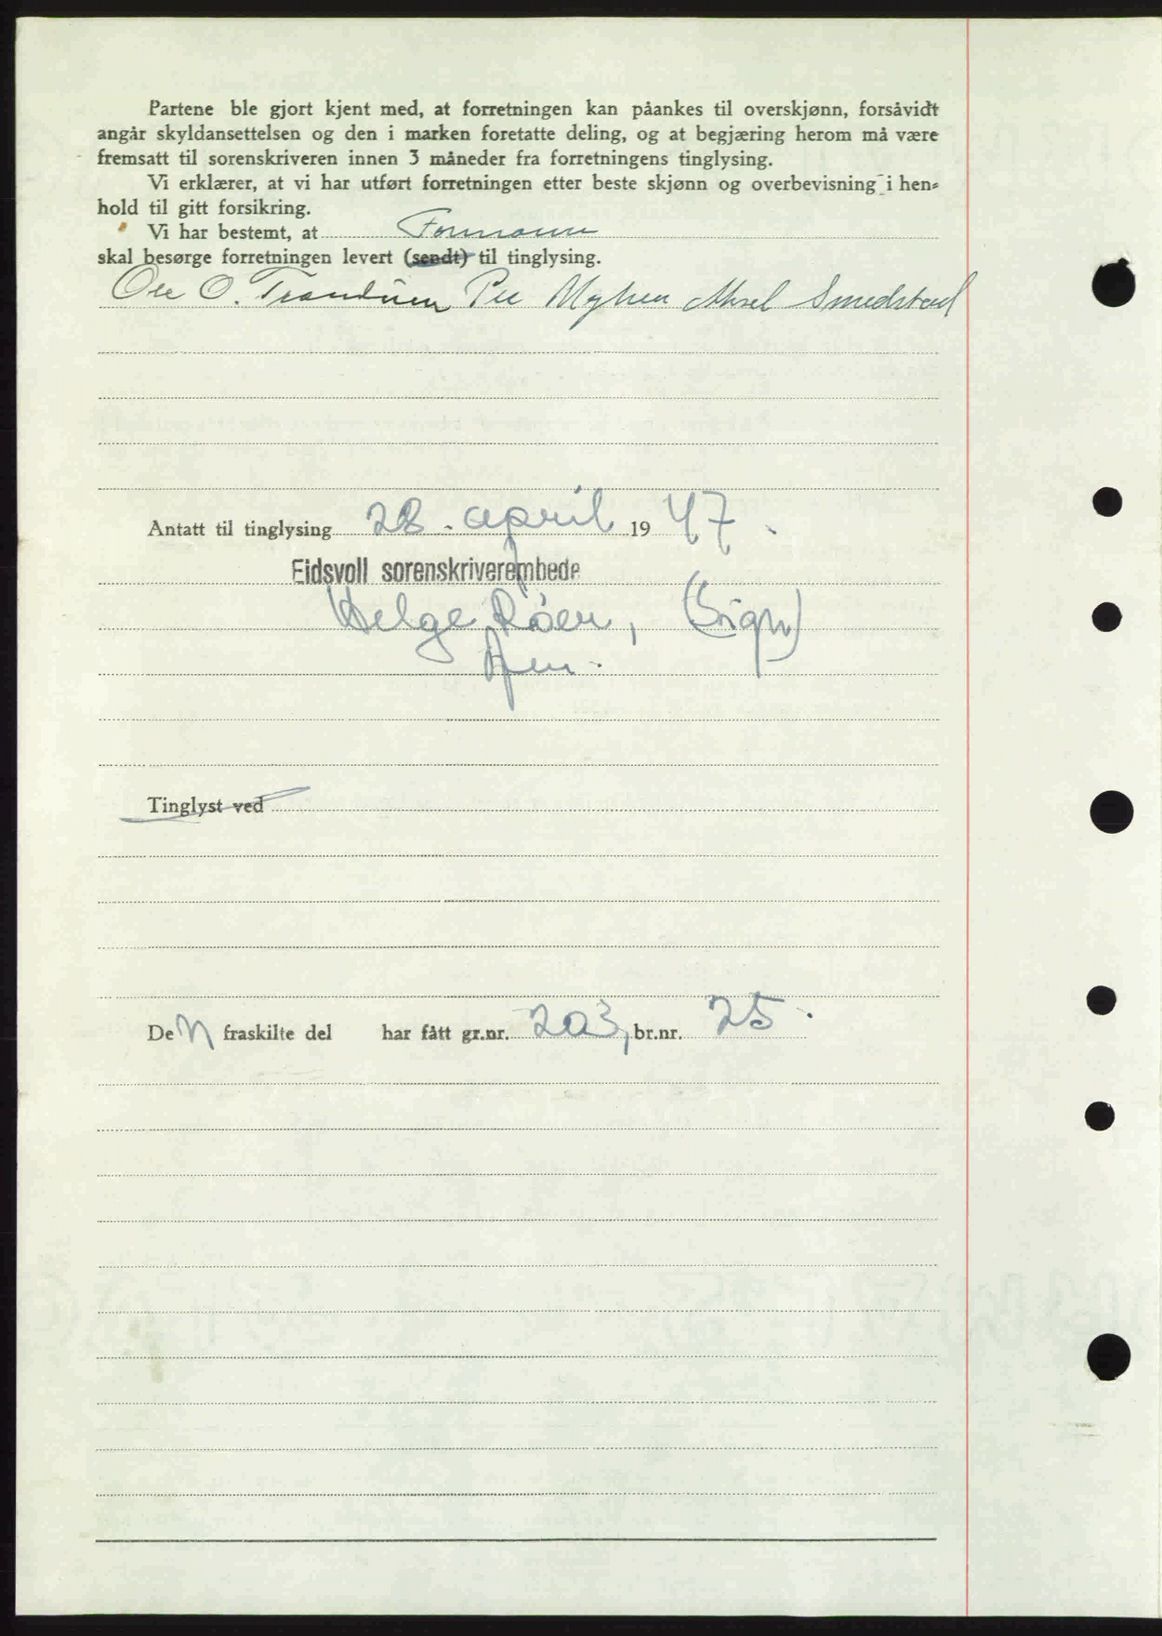 Partene ble gjort kjent med, at forretningen kan påankes til overskjønn, forsåvidt
angår skyldansettelsen og den i marken foretatte deling, og at begjæring herom må være
fremsatt til sorenskriveren innen 3 måneder fra forretningens tinglysing.
Vi erklærer, at vi har utført forretningen etter beste skjønn og overbevisning i hen-
hold til gitt forsikring.
Vi har bestemt, at Formann
skal besørge forretningen levert (sendt) til tinglysing.
Ole O. Trandum Per Myhrer Aksel Smedstad
Antatt til tinglysing 28. april 1947.
Eidsvoll sorenskriverembede
Helge Röer, (Sign)
Tinglyst ved
Den fraskilte del har fått gr.nr. 203, br.nr. 25.